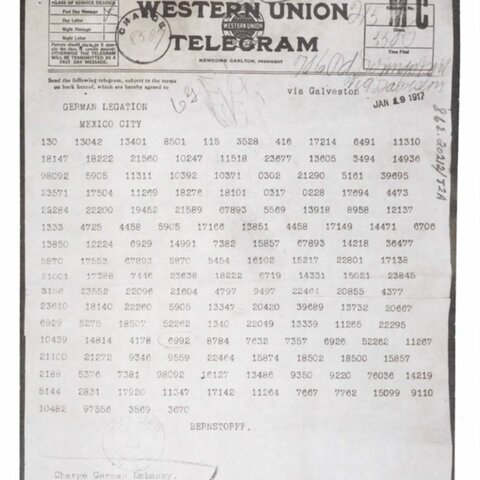 CLASS OF SERVICE DESIRED
Fast Day Message
Day Letter
Night Message
Night Letter
Patrons should mark an X oppo-
site the class of service desired;
OTHERWISE THE TELEGRAM
WILL BE TRANSMITTED AS A
FAST DAY MESSAGE.
WESTERN UNION
WESTERN UNION
TELEGRAM
NEWCOMB CARLTON, PRESIDENT
Time Filed
Send the following telegram, subject to the terms
on back hereof, which are hereby agreed to
via Galveston
JAN 19 1917
GERMAN LEGATION
MEXICO CITY
130 13042 13401 8501 115 3528 416 17214 6491 11310
18147 18222 21560 10247 11518 23677 13605 3494 14936
98092 5905 11311 10392 10371 0302 21290 5161 39695
23571 17504 11269 18276 18101 0317 0228 17694 4473
22284 22200 19452 21589 67893 5569 13918 8958 12137
1333 4725 4458 5905 17166 13851 4458 17149 14471 6706
13850 12224 6929 14991 7382 15857 67893 14218 36477
5870 17553 67893 5870 5454 16102 15217 22801 17138
21001 17388 7446 23638 18222 6719 14331 15021 23845
3156 23552 22096 21604 4797 9497 22464 20855 4377
23610 18140 22260 5905 13347 20420 39689 13732 20667
6929 5275 18507 52262 1340 22049 13339 11265 22295
10439 14814 4178 6992 8784 7632 7357 6926 52262 11267
21100 21272 9346 9559 22464 15874 18502 18500 15857
2188 5376 7381 98092 16127 13486 9350 9220 76036 14219
5144 2831 17920 11347 17142 11264 7667 7762 15099 9110
10482 97556 3569 3670
BERNSTOPFF.
Charge German Embassy.